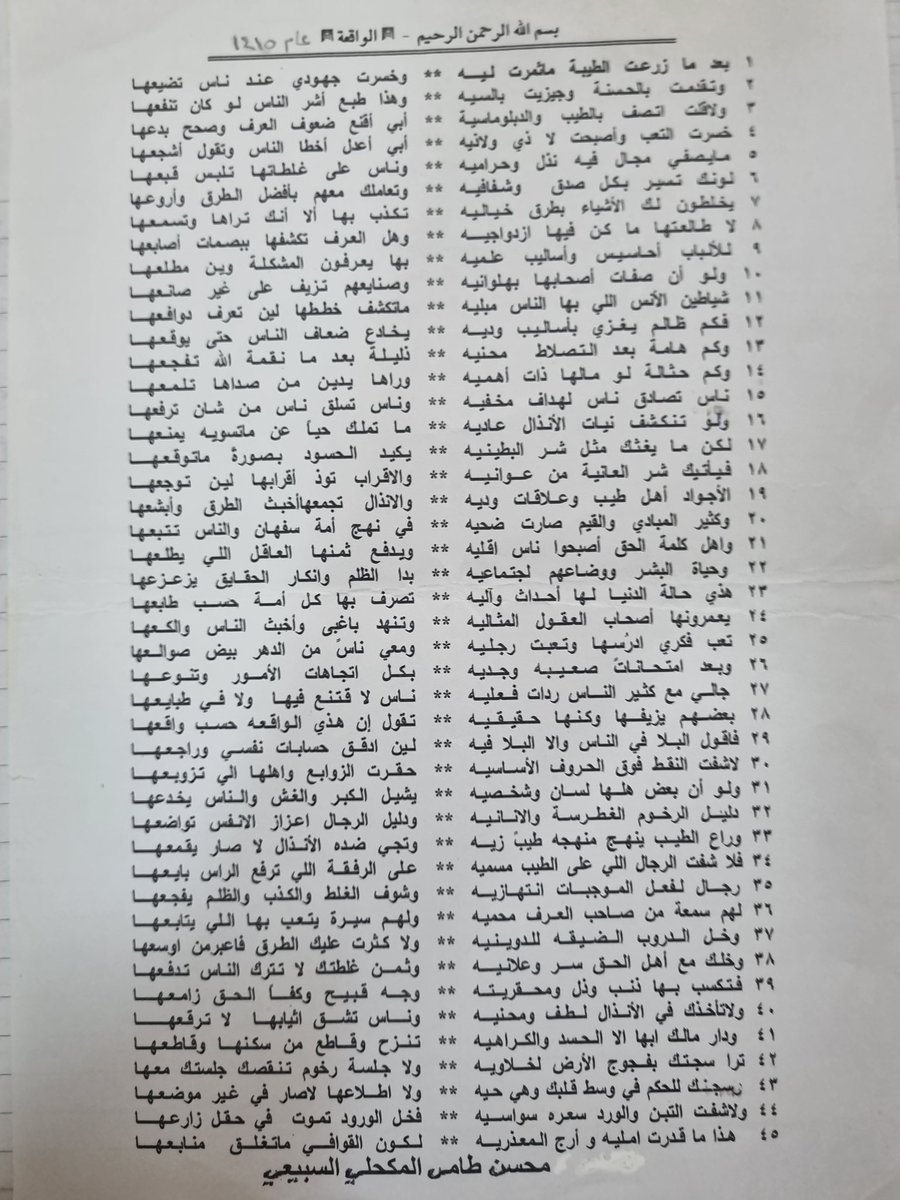 بسم الله الرحمن الرحيم - الواقعة عام ١٤١٥
١ بعد ما زرعت الطيبة ماثمرت ليه ** وخسرت جهودي عند ناس تضيعها
٢ وتقدمت بالحسنة وجيزيت بالسيه ** وهذا طبع أشر الناس لو كان تنفعها
٣ ولاقلت انصف بالطيب والدبلوماسية ** أبي أقنع ضعوف العرف وصحح بدعها
٤ خسرت التعب وأصبحت لا ذي ولانيه ** أبي أعدل أخطا الناس وتقول أشجعها
٥ مايصفي مجال فيه نذل وحراميه ** وناس على غلطاتها تلبس قبعها
٦ لونك تسير بكل صدق وشفافيه ** وتعاملك معهم بأفضل الطرق وأروعها
٧ يخلطون لك الأشياء بطرق خياليه ** تكذب بها ألا أنك تراها وتسمعها
٨ لا طالعتها ما كن فيها ازدواجيه ** وهل العرف تكشفها ببصمات أصابعها
٩ للألباب أحاسيس وأساليب علميه ** بها يعرفون المشكلة وين مطلعها
١٠ ولو أن صفات أصحابها بهلوانيه ** وصنايعهم تزيف على غير صانعها
١١ شياطين الأنس اللي بها الناس مبليه ** ماتكشف خططها لين تعرف دوافعها
١٢ فكم ظالم يغزي بأساليب وديه ** يخادع ضعاف الناس حتى يوقعها
١٣ وكم هامة بعد التصلاط محنيه ** ذليلة بعد ما نقمة الله تفجعها
١٤ وكم حثالة لو مالها ذات أهميه ** وراها يدين من صداها تلمعها
١٥ ناس تصادق ناس لهداف مخفيه ** وناس تسلق ناس من شان ترفعها
١٦ ولو تنكشف نيات الأنذال عاديه ** ما تملك حياً عن ماتسويه يمنعها
١٧ لكن ما يغثك مثل شر البطينيه ** يكيد الحسود بصورة ماتوقعها
١٨ فيأتيك شر العانية من عوانيه ** والاقراب توذ أقرابها لين توجعها
١٩ الأجواد أهل طيب وعلاقات وديه ** والانذال تجمعهاأخبث الطرق وأبشعها
٢٠ وكثير المبادي والقيم صارت ضحيه ** في نهج أمة سفهان والناس تتبعها
٢١ واهل كلمة الحق أصبحوا ناس اقليه ** ويدفع ثمنها العاقل اللي يطلعها
٢٢ وحياة البشر ووضاعهم لجتماعيه ** بدا الظلم وانكار الحقايق يزعزعها
٢٣ هذي حالة الدنيا لها أحداث وآليه ** تصرف بها كل أمة حسب طابعها
٢٤ يعمرونها أصحاب العقول المثاليه ** وتنهد باغبى وأخبث الناس والكعها
٢٥ تعب فكري ادرُسها وتعبت رجليه ** ومعي ناسً من الدهر بيض صوالعها
٢٦ وبعد امتحاناتً صعيبه وجديه ** بكل اتجاهات الأمور وتنوعها
٢٧ جالي مع كثير الناس ردات فعليه ** ناس لا قتنع فيها ولا في طبايعها
٢٨ بعضهم يزيفها وكنها حقيقيه ** تقول إن هذي الواقعه حسب واقعها
٢٩ فاقول البلا في الناس والا البلا فيه ** لين ادقق حسابات نفسي وراجعها
٣٠ لاشفت النقط فوق الحروف الأساسيه ** حقرت الزوابع واهلها الي تزوبعها
٣١ ولو أن بعض هلها لسان وشخصيه ** يشيل الكبر والغش والناس يخدعها
٣٢ دليل الرخوم الغطرسة والانانيه ** ودليل الرجال اعزاز الانفس تواضعها
٣٣ وراع الطيب ينهج منهجه طيبً زيه ** وتجي ضده الأنذال لا صار يقمعها
٣٤ فلا شفت الرجال اللي على الطيب مسميه ** على الرفقة اللي ترفع الراس بايعها
٣٥ رجال لفعل الموجبات انتهازيه ** وشوف الغلط والكذب والظلم يفجعها
٣٦ لهم سمعة من صاحب العرف محميه ** ولهم سيرة يتعب بها اللي يتابعها
٣٧ وخل الدروب الضيقه للدوينيه ** ولا كثرت عليك الطرق فاعبرمن اوسعها
٣٨ وخلك مع أهل الحق سر وعلانيه ** وثمن غلطتك لا تترك الناس تدفعها
٣٩ فتكسب بها ذنب وذل ومحقريته ** وجه قبيح وكفاً الحق زامعها
٤٠ ولاتأخذك في الأنذال لطف ومحنيه ** وناس تشق اثيابها لا ترقعها
٤١ ودار مالك ابها الا الحسد والكراهيه ** تنزح وقاطع من سكنها وقاطعها
٤٢ ترا سجتك بفجوج الأرض لخلاويه ** ولا جلسة رخوم تنقصك جلستك معها
٤٣ رسجنك للحكم في وسط قلبك وهي حيه ** ولا اطلاعها لاصار في غير موضعها
٤٤ ولاشفت التبن والورد سعره سواسيه ** فخل الورود تموت في حقل زارعها
٤٥ هذا ما قدرت امليه و أرج المعذريه ** لكون القوافي ماتغلق منابعها
محسن طامي المكحلي السبيعي